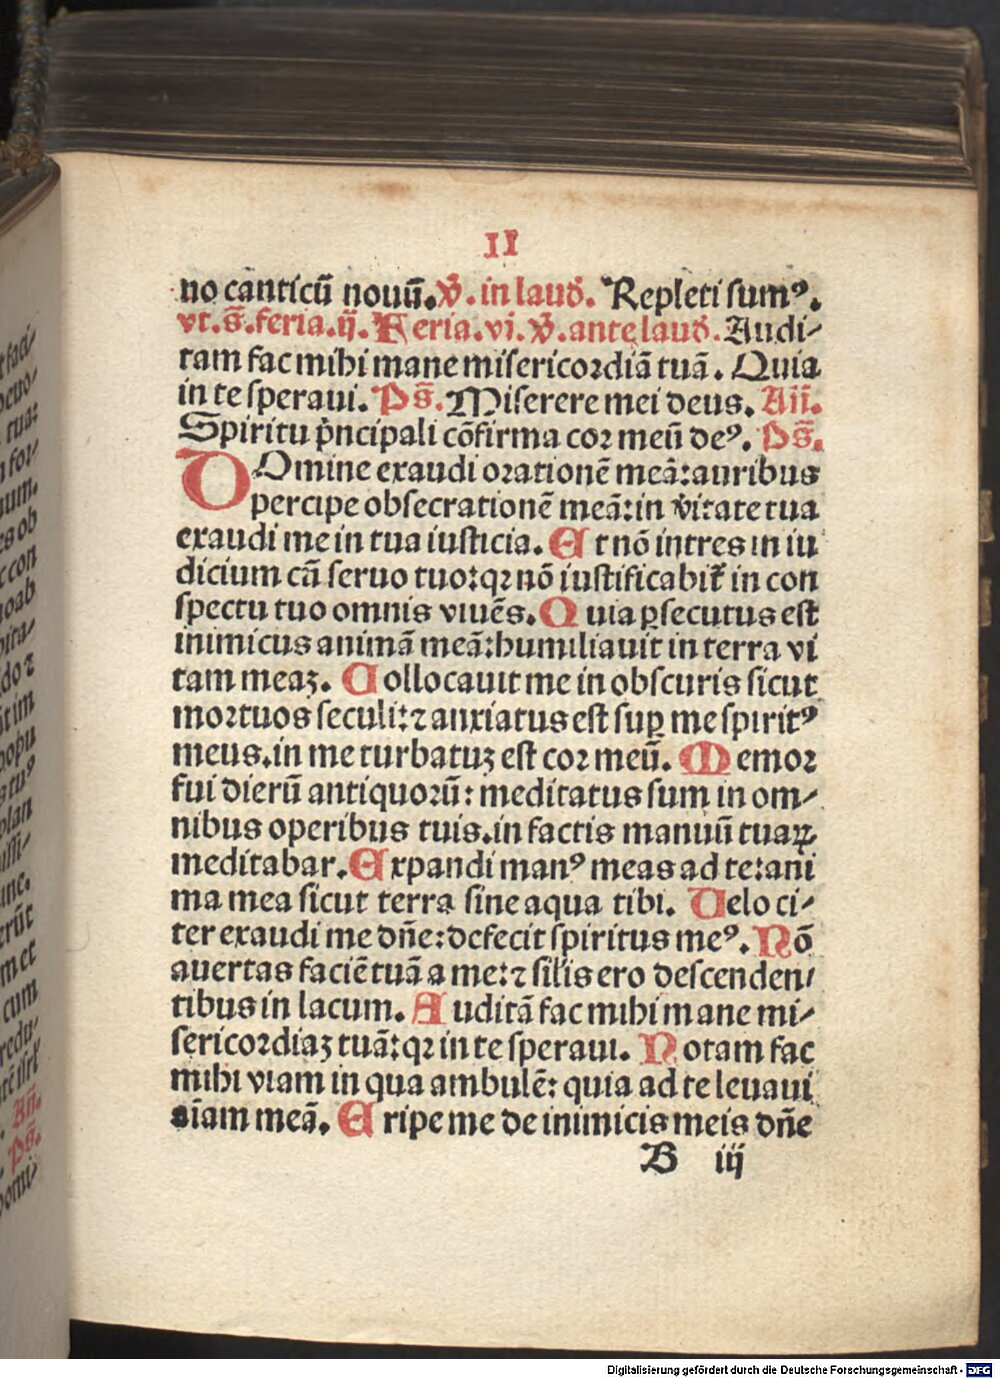 II
no canticū nouū. V̄. in laud̄. Repleti sumꝰ.
vt. s̄. feria. ij. Feria. vi. V̄. ante laud̄. Audi⸗
tam fac mihi mane misericordiā tuā. Quia
in te speraui. Ps̄. Miserere mei deus. Añ.
Spiritu p̄ncipali cōfirma cor meū deꝰ. Ps̄.
DOmine exaudi orationē meā: auribus
percipe obsecrationē meā: in v̄itate tua
exaudi me in tua iusticia. Et nō intres in iu
dicium cā seruo tuo: qꝛ nō iustificabit᷑ in con
spectu tuo omnis viuēs. Quia ꝑsecutus est
inimicus animā meā: humiliauit in terra vi
tam meaꝫ. Collocauit me in obscuris sicut
mortuos seculi: ⁊ anxiatus est suꝑ me spiritꝰ
meus. in me turbatuꝫ est cor meū. Memor
fui dierū antiquorū: meditatus sum in om⸗
nibus operibus tuis. in factis manuū tuaꝝ
meditabar. Expandi manꝰ meas ad te: ani
ma mea sicut terra sine aqua tibi. Uelo ci⸗
ter exaudi me dñe: defecit spiritus meꝰ. Nō
auertas faciē tuā a me: ⁊ sil̄is ero descenden⸗
tibus in lacum. Auditā fac mihi mane mi⸗
sericordiaꝫ tuā: qꝛ in te speraui. Notam fac
mihi viam in qua ambulē: quia ad te leuaui
aīam meā. Eripe me de inimicis meis dñe
B iij
Digitalisierung gefördert durch die Deutsche Forschungsgemeinschaft - DFG